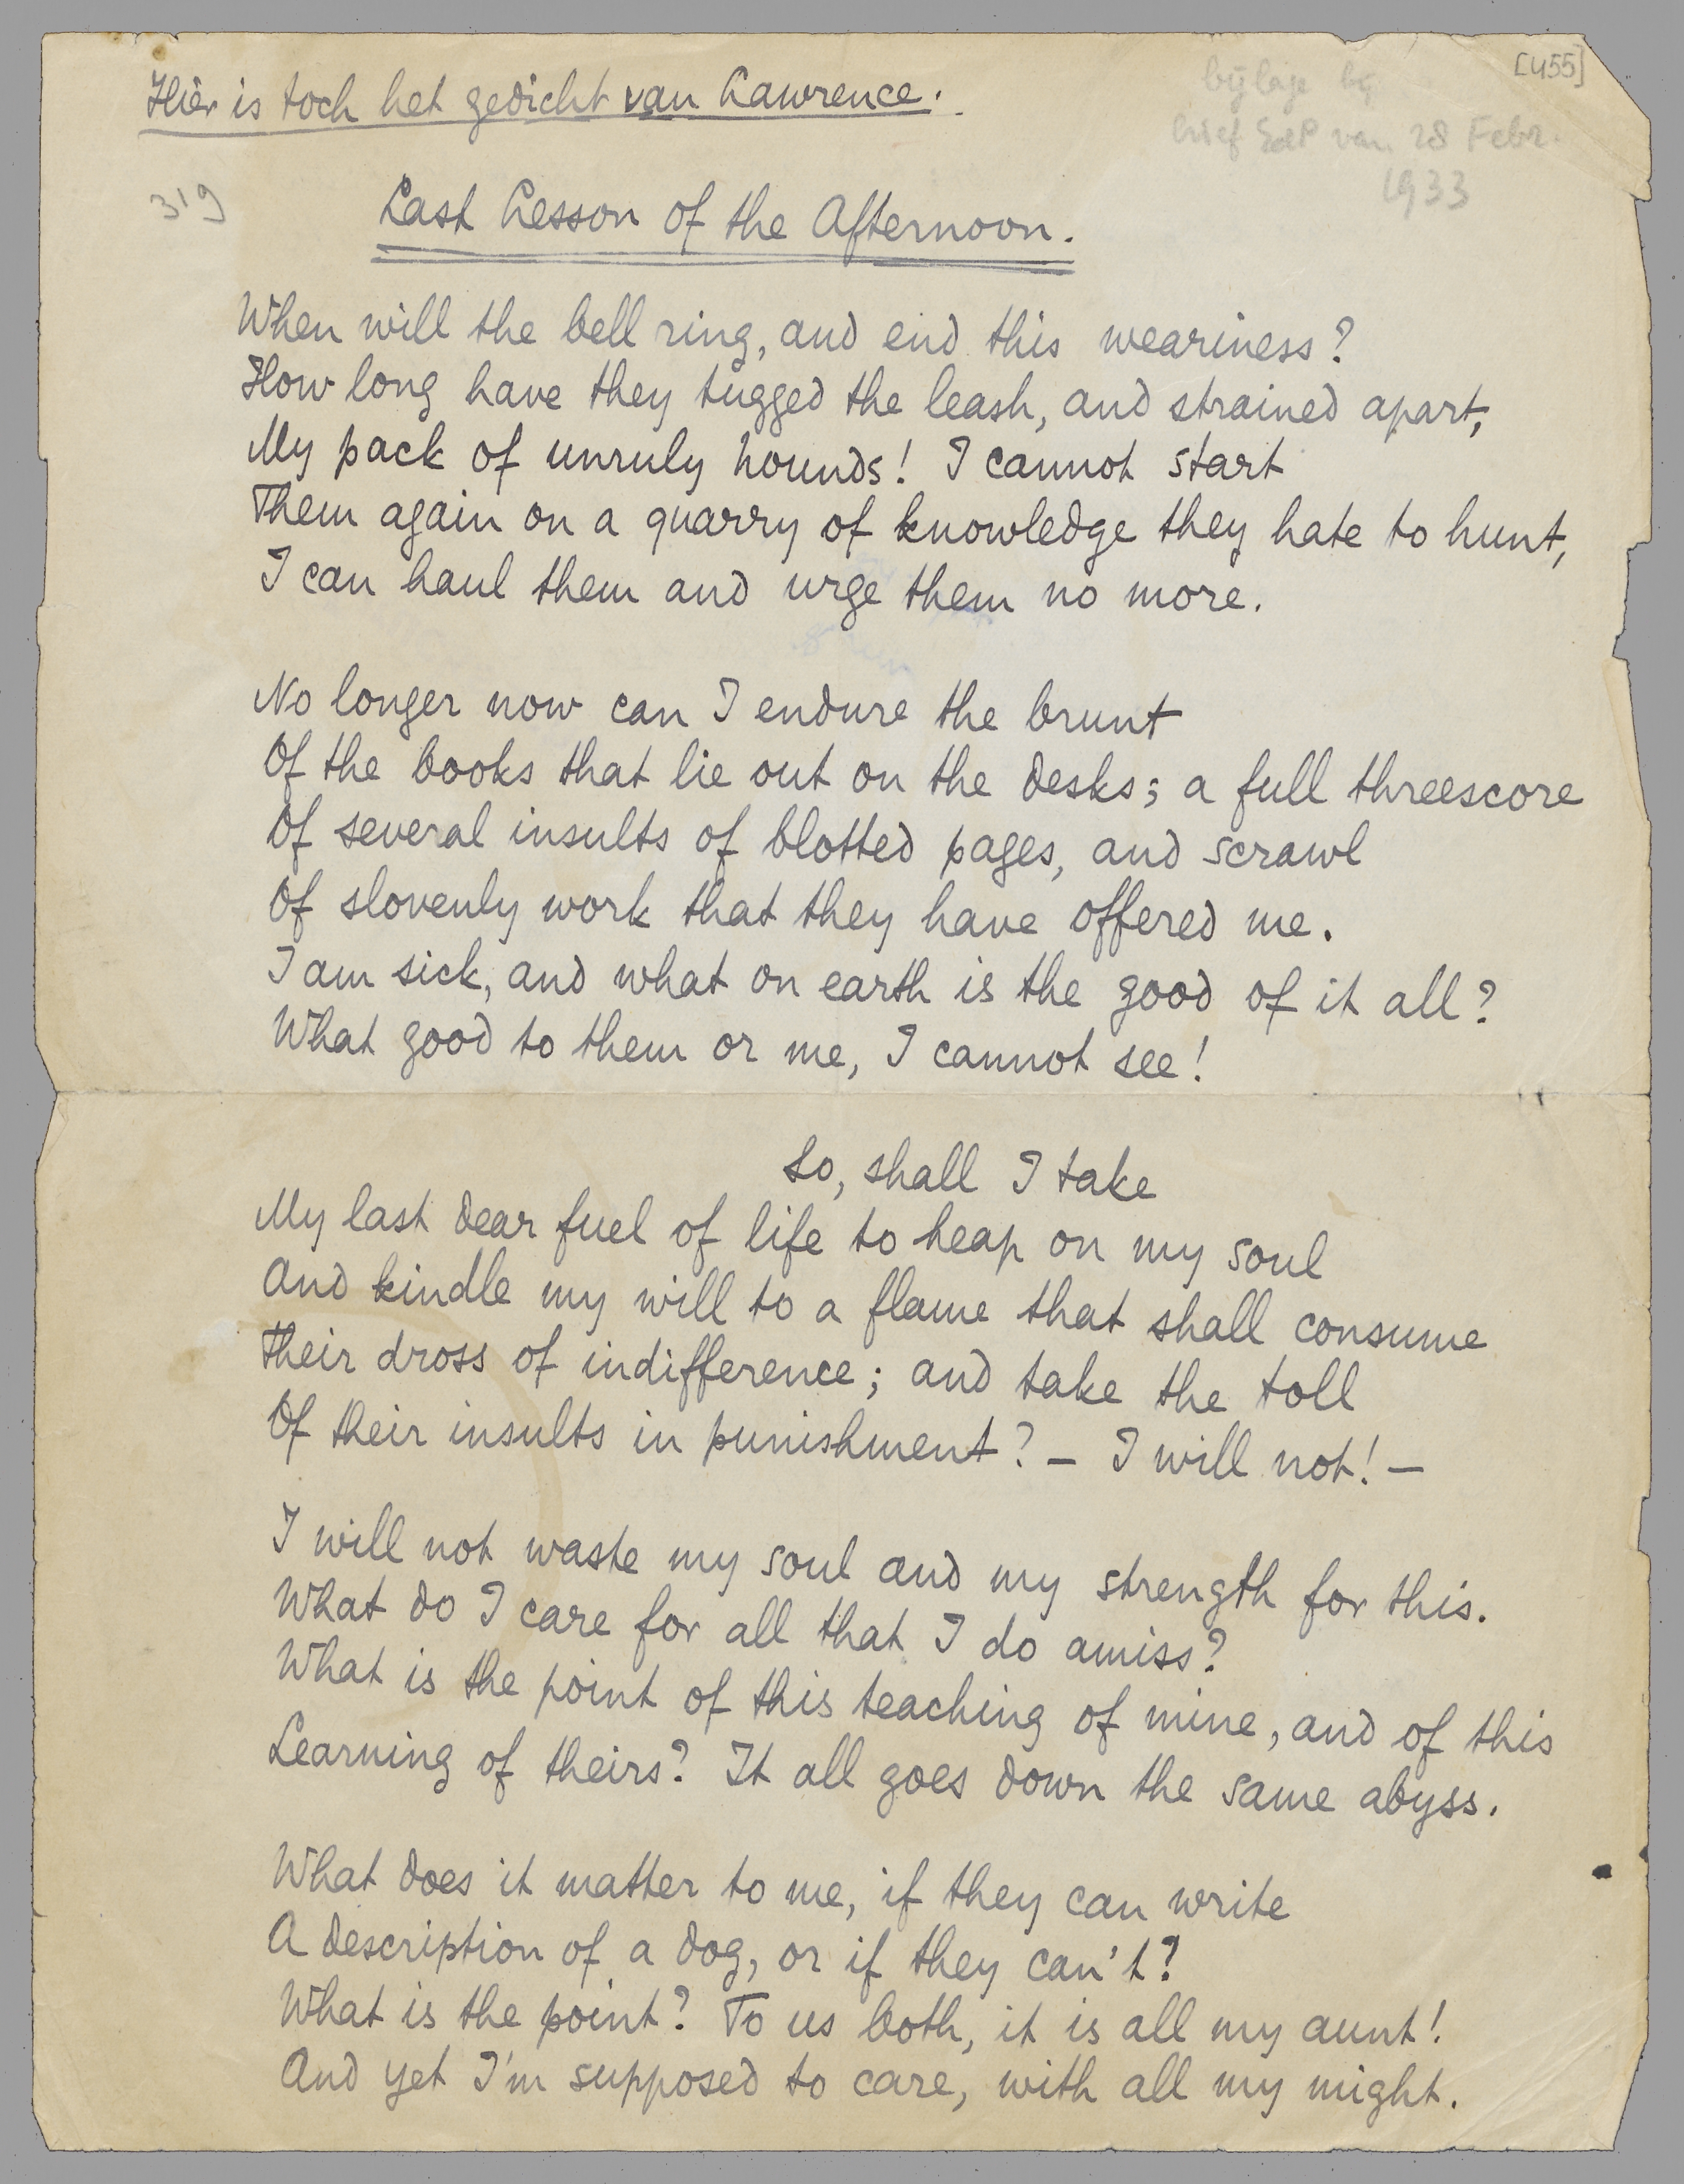 Hier is toch het gedicht van Lawrence.
[455]
bijlage bij
brief EdP van 28 Febr.
1933
319
Last Lesson of the Afternoon.
When will the bell ring, and end this weariness?
How long have they tugged the leash, and strained apart,
My pack of unruly hounds! I cannot start
Them again on a quarry of knowledge they hate to hunt,
I can haul them and urge them no more.
No longer now can I endure the brunt
Of the books that lie out on the desks; a full threescore
Of several insults of blotted pages, and scrawl
Of slovenly work that they have offered me.
I am sick, and what on earth is the good of it all?
What good to them or me, I cannot see!
So, shall I take
My last dear fuel of life to heap on my soul
And kindle my will to a flame that shall consume
Their dross of indifference; and take the toll
Of their insults in punishment? — I will not! —
I will not waste my soul and my strength for this.
What do I care for all that I do amiss?
What is the point of this teaching of mine, and of this
Learning of theirs? It all goes down the same abyss.
What does it matter to me, if they can write
A description of a dog, or if they can't?
What is the point? To us both, it is all my aunt!
And yet I'm supposed to care, with all my might.